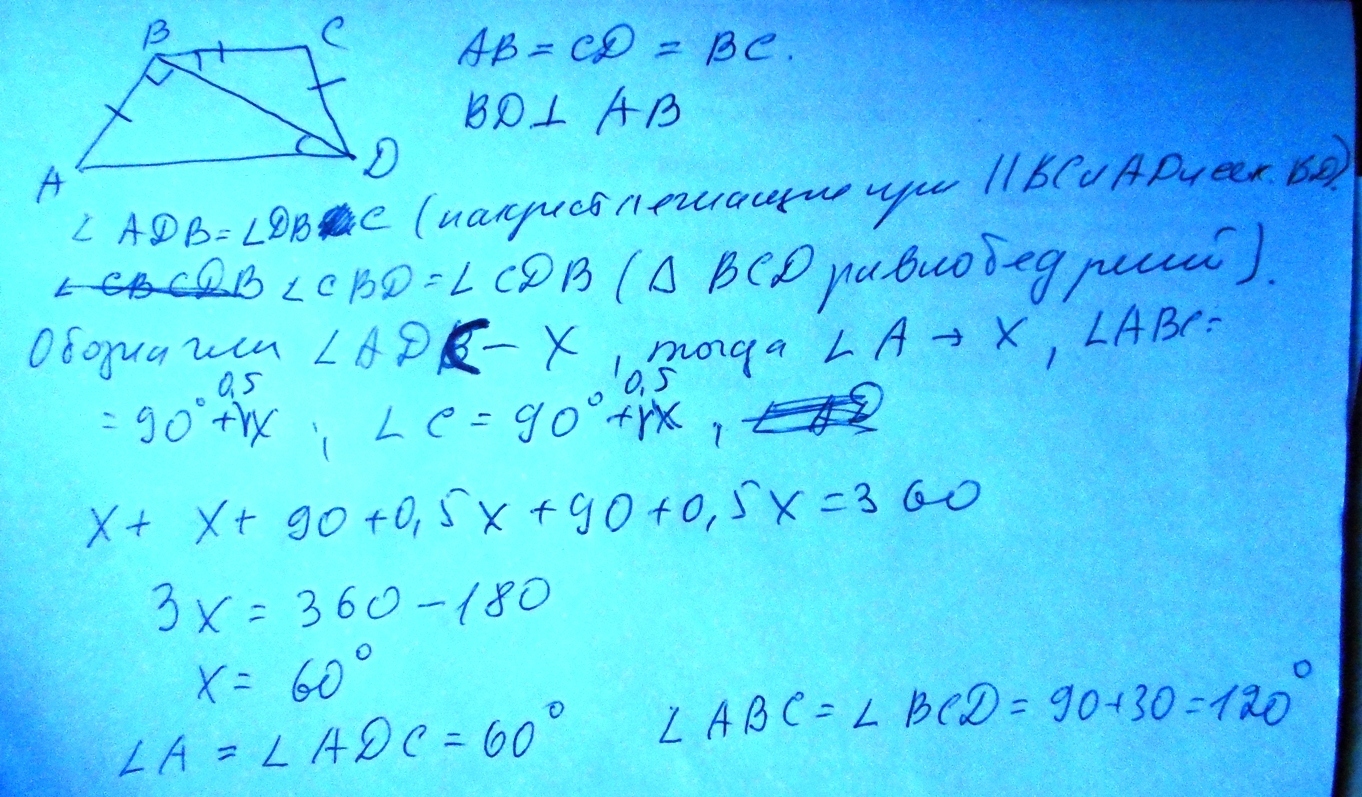 B C
A D
AB = CD = BC.
BD ⊥ AB
∠ ADB = ∠DBC (накрест лежащие при || BC и AD и сек. BD)
∠ CBD = ∠ CDB (Δ BCD равнобедрений).
Обозначим ∠ ADC – X, тогда ∠ A → X, ∠ABC =
= 90° + 0,5X, ∠ C = 90° + 0,5X,
X + X + 90 + 0,5X + 90 + 0,5X = 360
3X = 360 – 180
X = 60°
∠ A = ∠ ADC = 60° ∠ ABC = ∠ BCD = 90+30 = 120°